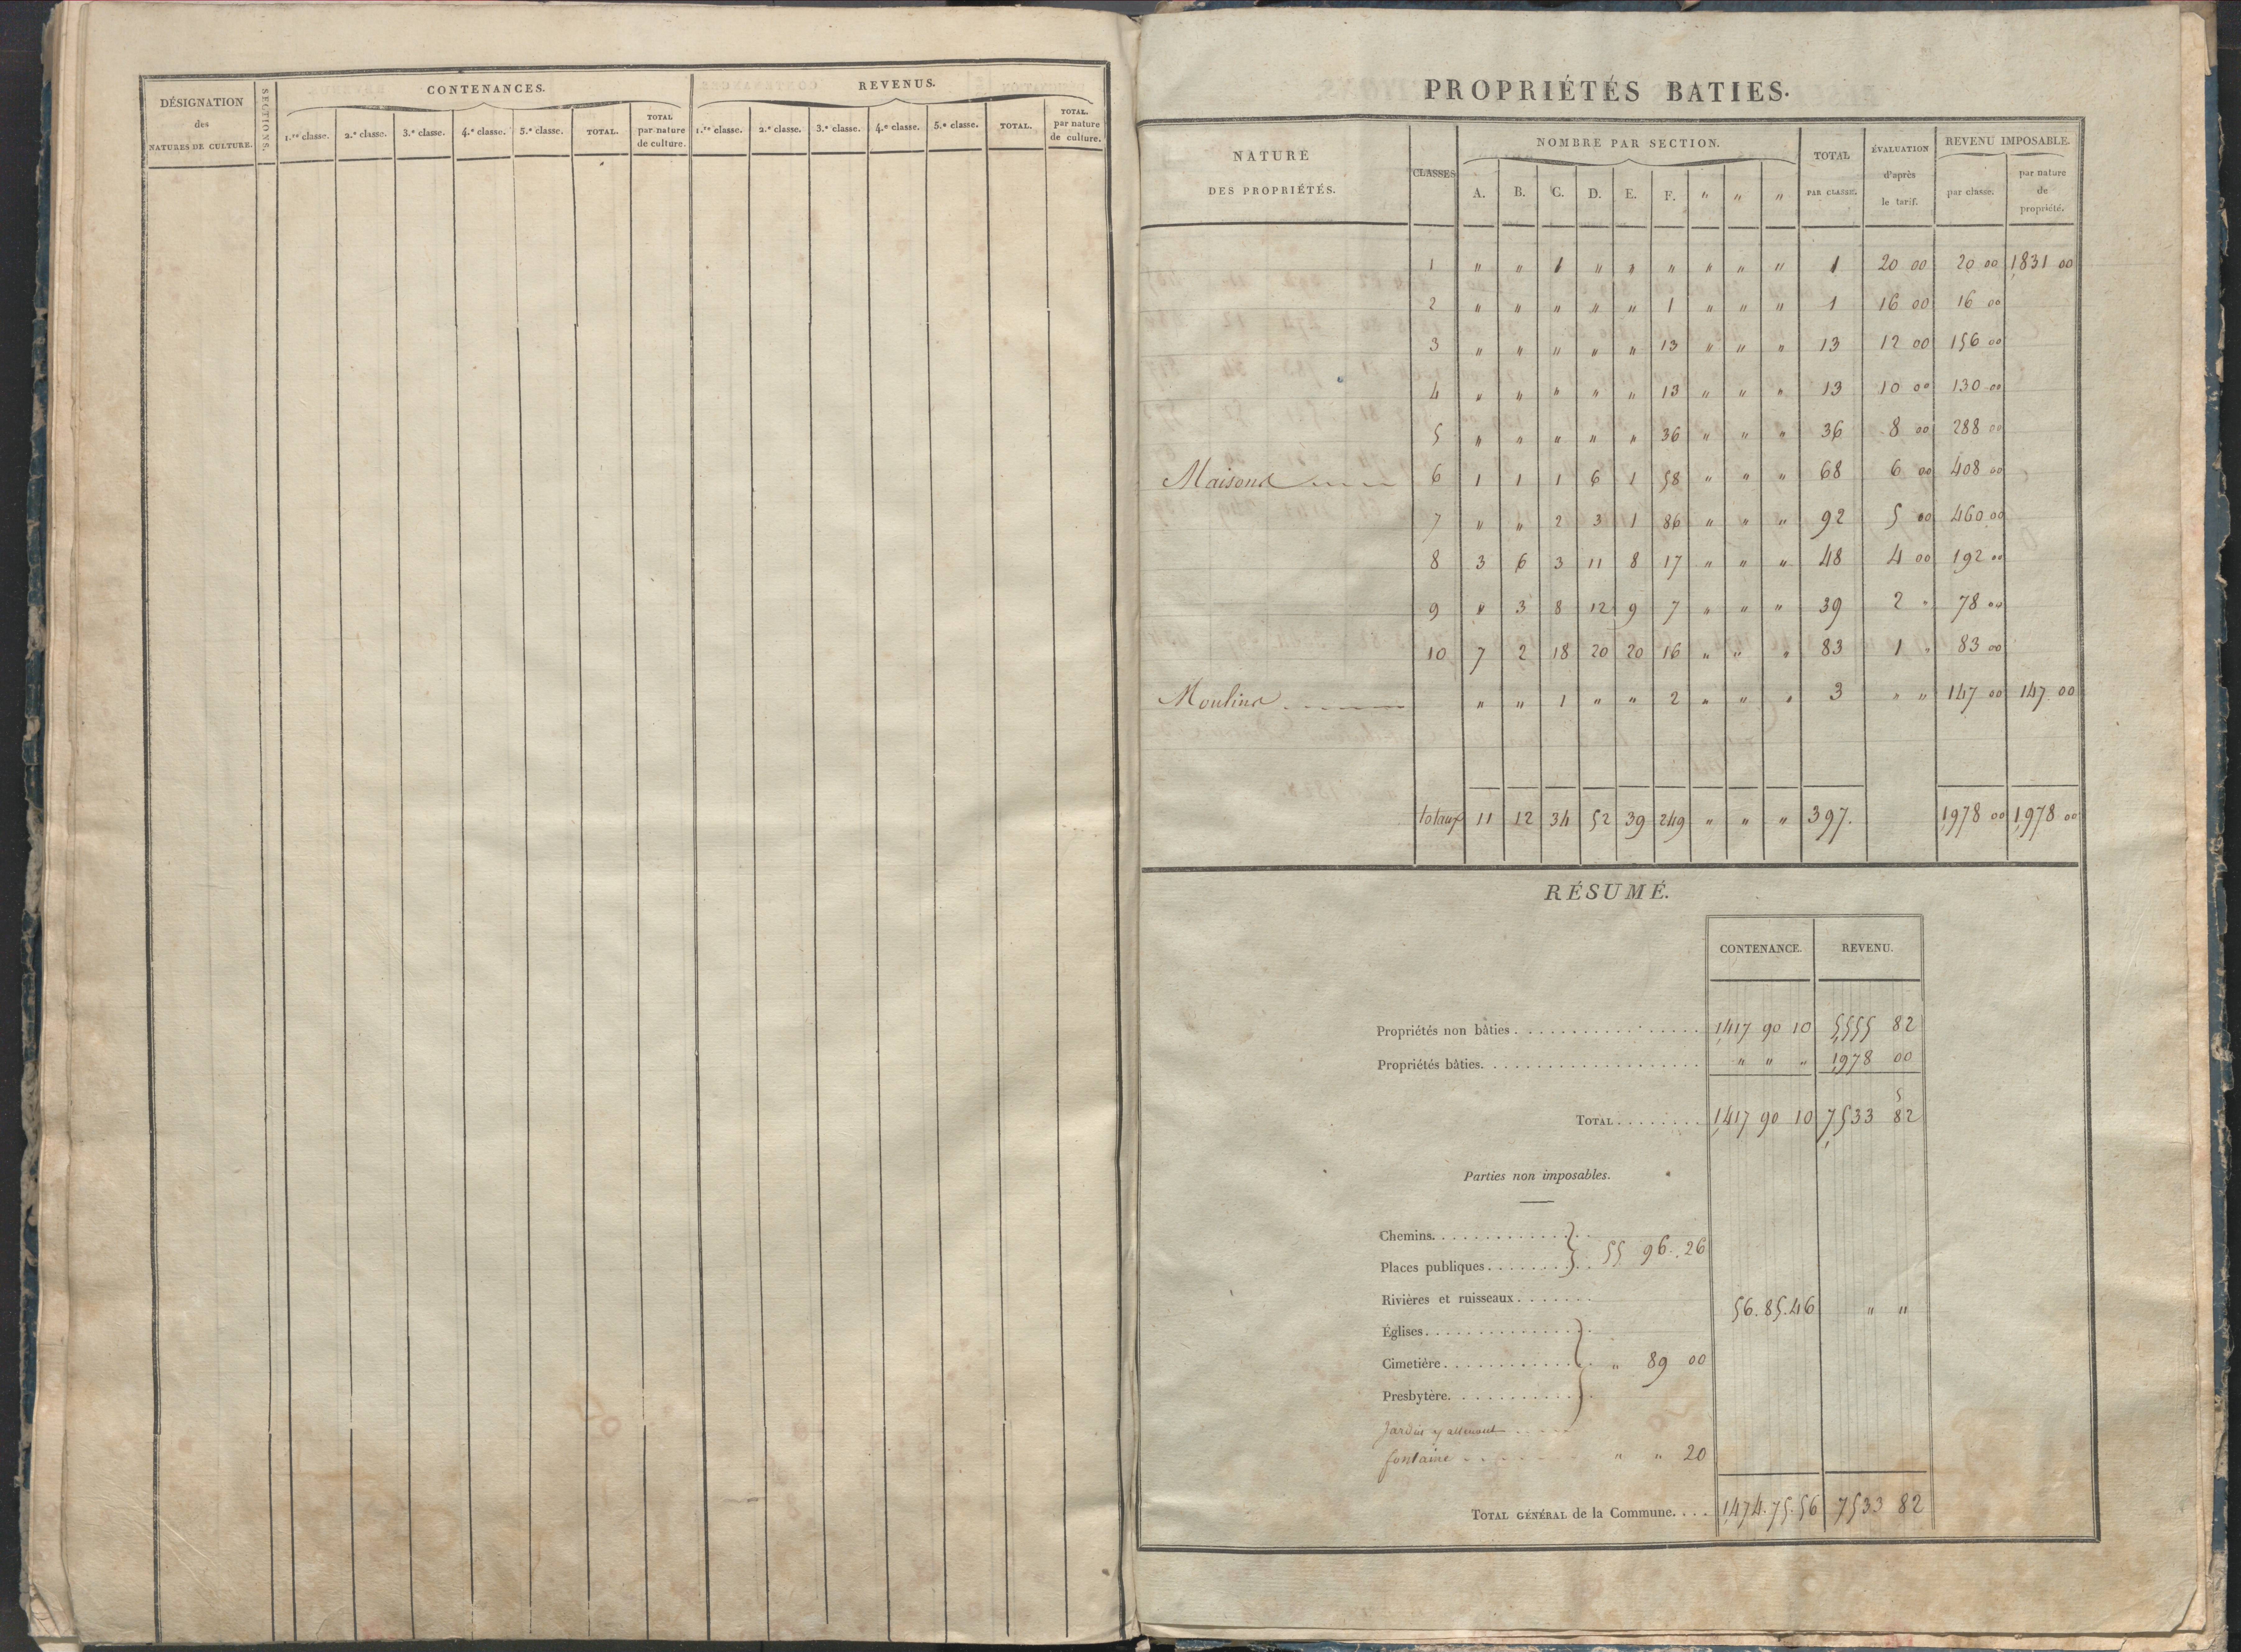 DÉSIGNATION
des
NATURES DE CULTURE.
SECTIONS.
CONTENANCES.
1.re classe. 2.e classe. 3.e classe. 4.e classe. 5.e classe. TOTAL. TOTAL par nature de culture.
REVENUS.
1.re classe. 2.e classe. 3.e classe. 4.e classe. 5.e classe. TOTAL. TOTAL. par nature de culture.
PROPRIÉTÉS BATIES.
NATURE
DES PROPRIÉTÉS.
CLASSES
NOMBRE PAR SECTION.
A. B. C. D. E. F. " " "
TOTAL
PAR CLASSE.
ÉVALUATION
d'après
le tarif.
REVENU IMPOSABLE.
par classe. par nature de propriété.
1 " " 1 " " " " " " 1 20 00 20 00 1,831 00
2 " " " " " 1 " " " 1 16 00 16 00
3 " " " " " 13 " " " 13 12 00 156 00
4 " " " " " 13 " " " 13 10 00 130 00
5 " " " " " 36 " " " 36 8 00 288 00
Maisons 6 1 1 1 6 1 58 " " " 68 6 00 408 00
7 " " 2 3 1 86 " " " 92 5 00 460 00
8 3 6 3 11 8 17 " " " 48 4 00 192 00
9 " 3 8 12 9 7 " " " 39 2 " 78 00
10 7 2 18 20 20 16 " " " 83 1 " 83 00
Moulins " " 1 " " 2 " " " 3 " " 147 00 147 00
totaux 11 12 34 52 39 249 " " " 397. 1,978 00 1,978 00
RÉSUMÉ.
CONTENANCE. REVENU.
Propriétés non bâties 1,417 90 10 5,555 82
Propriétés bâties. " " " 1,978 00
5
TOTAL 1,417 90 10 7,533 82
Parties non imposables.
Chemins.
Places publiques } 55 96. 26
Rivières et ruisseaux
56.85.46 " "
Églises
Cimetière } " 89 00
Presbytère.
Jardin y attenant
fontaine " " 20
TOTAL GÉNÉRAL de la Commune. 1,474.75.56 7533 82